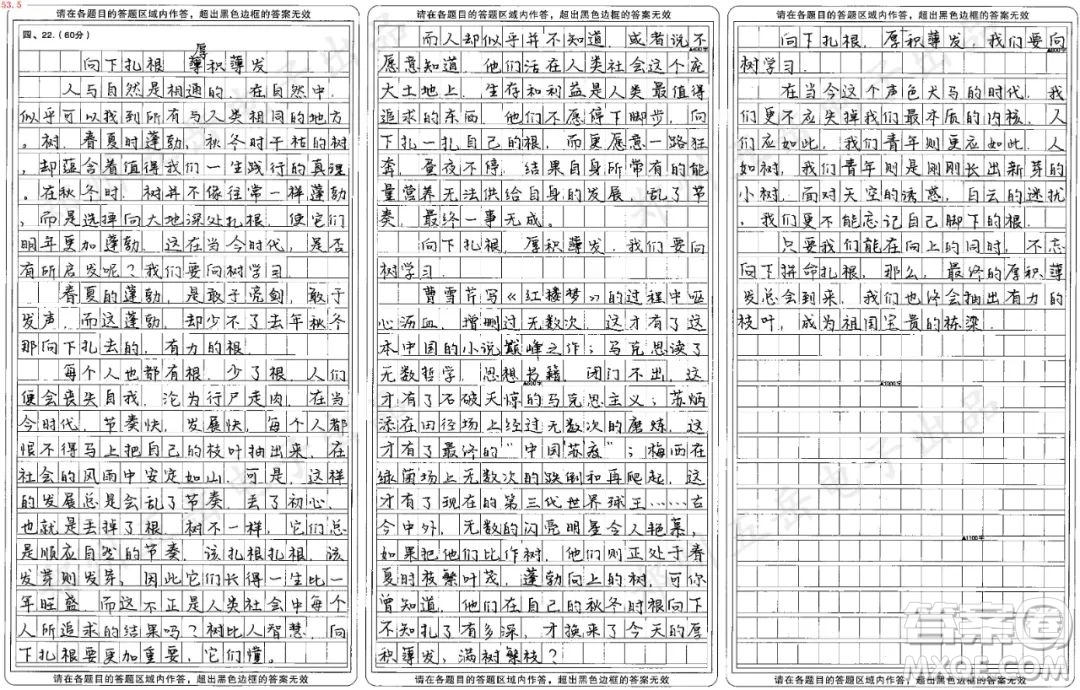 53.5
请在各题目的答题区域内作答，超出黑色边框的答案无效
四、22.（60分）
厚
向下扎根 薄积薄发
人与自然是相通的。在自然中，
似乎可以找到所有与人类相同的地方
。树，春夏时蓬勃，秋冬时干枯的树
，却蕴含着值得我们一生践行的真理
。在秋冬时，树并不像往常一样蓬勃
，而是选择向大地深处扎根，使它们
明年更加蓬勃。这在当今时代，是否
有所启发呢？我们要向树学习。
春夏的蓬勃，是敢于亮剑，敢于
发声。而这蓬勃，却少不了去年秋冬
那向下扎去的，有力的根。
每个人也都有根，少了根，人们
便会丧失自我，沦为行尸走肉。在当
今时代，节奏快，发展快，每个人都
恨不得马上把自己的枝叶抽出来，在
社会的风雨中安定如山。可是，这样
的发展总是会乱了节奏，丢了初心，
也就是丢掉了根。树不一样，它们总
是顺应自然的节奏，该扎根扎根，该
发芽则发芽，因此它们长得一生比一
年旺盛。而这不正是人类社会中每个
人所追求的结果吗？树比人智慧，向
下扎根要更加重要，它们懂。
请在各题目的答题区域内作答，超出黑色边框的答案无效
请在各题目的答题区域内作答，超出黑色边框的答案无效
而人却似乎并不知道，或者说不
愿意知道。他们活在人类社会这个庞
大土地上，生存和利益是人类最值得
追求的东西，他们不愿停下脚步，向
下扎一扎自己的根，而更愿意一路狂
奔，昼夜不停，结果自身所带有的能
量营养无法供给自身的发展，乱了节
奏，最终一事无成。
向下扎根，厚积薄发，我们要向
树学习。
曹雪芹写《红楼梦》的过程中呕
心沥血，增删过无数次，这才有了这
本中国的小说巅峰之作；马克思读了
无数哲学，思想书籍，闭门不出，这
▲600字
才有了石破天惊的马克思主义；苏炳
添在田径场上经过无数次的磨炼，这
才有了最终的“中国苏夜”；梅西在
绿茵场上无数次的跌倒和再爬起，这
才有了现在的第三代世界球王……古
今中外，无数的闪亮明星令人艳慕，
如果把他们比作树，他们则正处于春
夏时枝繁叶茂，蓬勃向上的树，可你
曾知道，他们在自己的秋冬时根向下
不知扎了有多深，才换来了今天的厚
积薄发，满树繁枝？
请在各题目的答题区域内作答，超出黑色边框的答案无效
请在各题目的答题区域内作答，超出黑色边框的答案无效
向下扎根，厚积薄发，我们要向
▲800字
树学习。
在当今这个声色犬马的时代，我
们更不应失掉我们最本质的内核，人
们应如此，我们青年则更应如此。人
如树，我们青年则是刚刚长出新芽的
小树，面对天空的诱惑，白云的迷扰
，我们更不能忘记自己脚下的根。
只要我们能在向上的同时，不忘
向下拼命扎根，那么，最终的厚积薄
发总会到来，我们也终会抽出有力的
枝叶，成为祖国宝贵的栋梁。
▲1000字
▲1100字
请在各题目的答题区域内作答，超出黑色边框的答案无效
答案圈
MXQE.COM